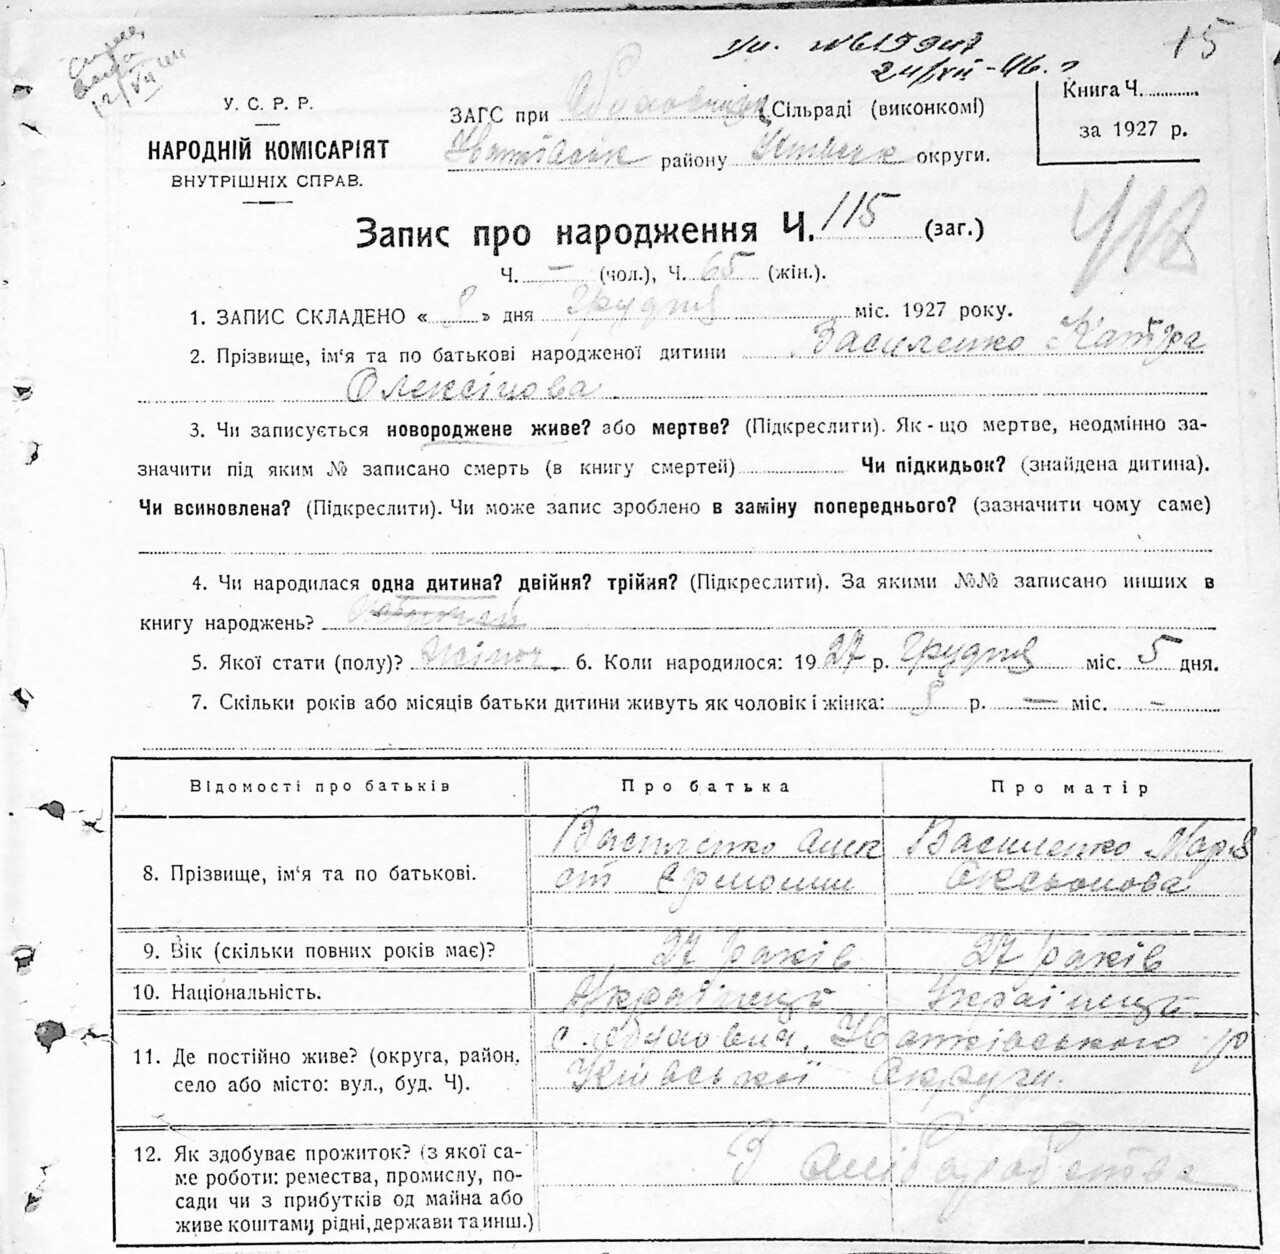 15
№ 619947
24/VII-46.
У. С. Р. Р.
НАРОДНІЙ КОМІСАРІЯТ
ВНУТРІШНІХ СПРАВ.
ЗАГС при Сільраді (виконкомі)
району округи.
Книга Ч.
за 1927 р.
Запис про народження Ч. 115 (заг.)
Ч. — (чол.), Ч. 65 (жін.).
1. ЗАПИС СКЛАДЕНО « 9 » дня Грудня міс. 1927 року.
2. Прізвище, ім'я та по батькові народженої дитини Василенко
Олексіцова
3. Чи записується новороджене живе? або мертве? (Підкреслити). Як-що мертве, неодмінно за-
значити під яким № записано смерть (в книгу смертей) Чи підкидьок? (знайдена дитина).
Чи всиновлена? (Підкреслити). Чи може запис зроблено в заміну попереднього? (зазначити чому саме)
4. Чи народилася одна дитина? двійня? трійня? (Підкреслити). За якими №№ записано инших в
книгу народжень?
5. Якої стати (полу)? Жіноч. 6. Коли народилося: 1927 р. Грудня міс. 5 дня.
7. Скільки років або місяців батьки дитини живуть як чоловік і жінка: 9 р. — міс. —
Відомості про батьків Про батька Про матір
8. Прізвище, ім'я та по батькові. Василенко Василенко Марія
9. Вік (скільки повних років має)? 27 раків 27 раків
10. Національність. Українць Українць
11. Де постійно живе? (округа, район, с. району
село або місто: вул., буд. Ч). Київської Округи.
12. Як здобуває прожиток? (з якої са-
ме роботи: ремества, промислу, по-
сади чи з прибутків од майна або
живе коштами рідні, держави та инш.) З хліборобства